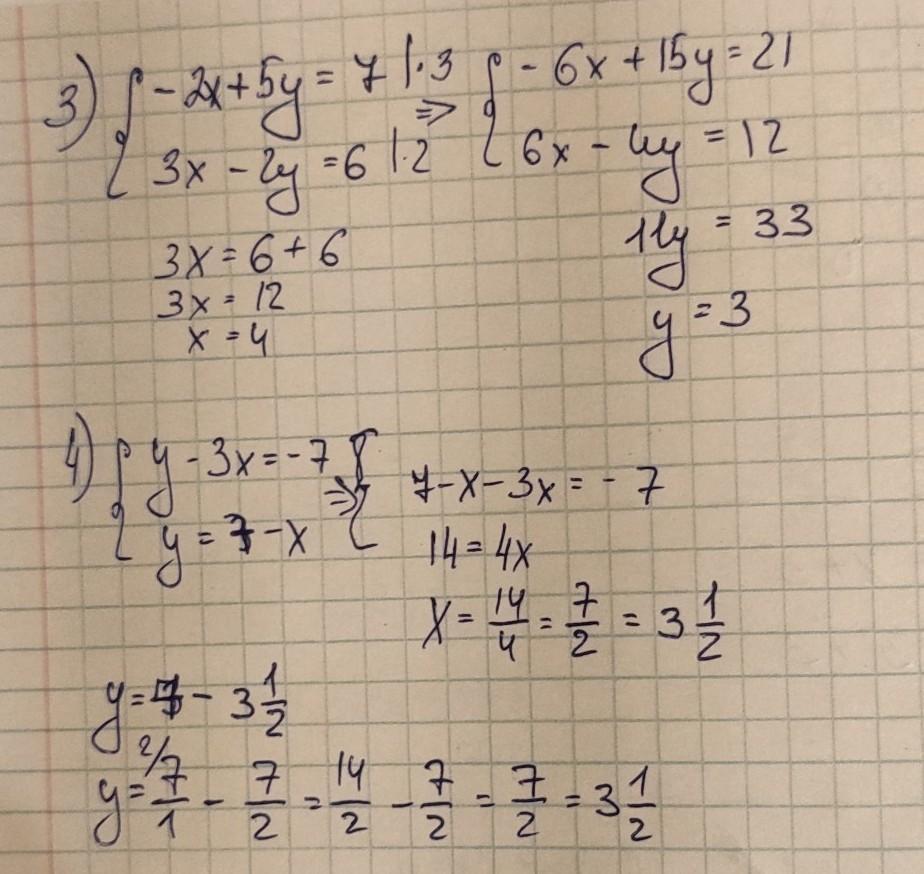 3) { -2x + 5y = 7 |·3 ⇒ { -6x + 15y = 21
3x - 2y = 6 |·2 6x - 4y = 12
11y = 33
y = 3
3x = 6 + 6
3x = 12
x = 4
4) { y - 3x = -7 ⇒ { 7 - x - 3x = -7
y = 7 - x
14 = 4x
x = 14/4 = 7/2 = 3 1/2
y = 7 - 3 1/2
y = ²/7/1 - 7/2 = 14/2 - 7/2 = 7/2 = 3 1/2